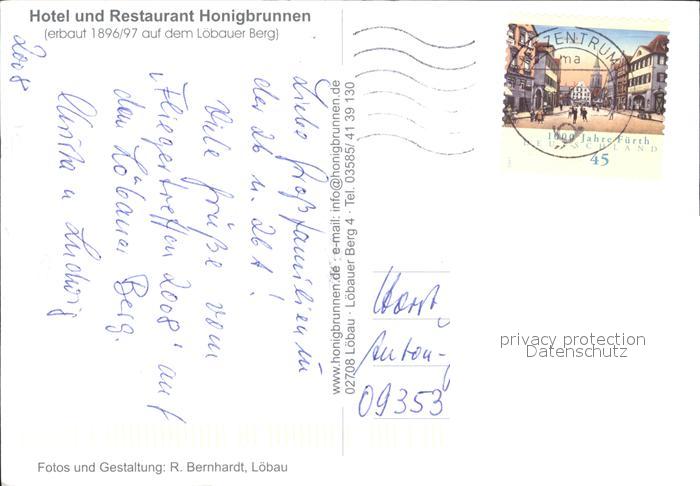 Hotel und Restaurant Honigbrunnen
(erbaut 1896/97 auf dem Löbauer Berg)
Liebe Großfamilien in
der 26 u. 26 !
Viele Grüße vom
Fliegertreffen 2008 auf
dem Löbauer Berg.
u. Ludwig
2008
www.honigbrunnen.de · e-mail: info@honigbrunnen.de
02708 Löbau · Löbauer Berg 4 · Tel. 03585/ 41 39 130
ZENTRUM
ma
1000 Jahre Fürth
DEUTSCHLAND
45
Horst
Anton-
09353
privacy protection
Datenschutz
Fotos und Gestaltung: R. Bernhardt, Löbau